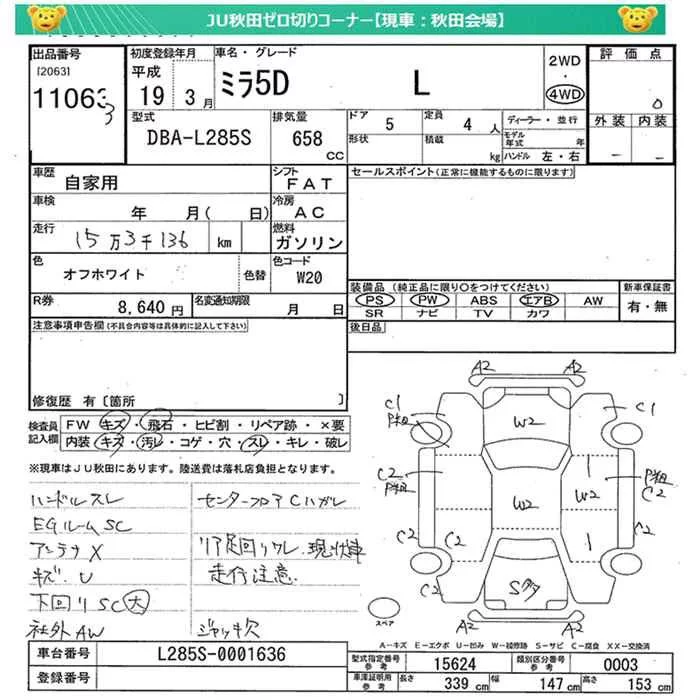 JU秋田ゼロ切りコーナー【現車：秋田会場】
出品番号
[2063]
11063
3
初度登録年月
平成
19 3月
車名・グレード
ミラ5D L
2WD
・
4WD
評価点
0
外装 内装
－ －
型式
DBA-L285S
排気量
658
CC
ドア
5
定員
4 人
形状
積載
kg
ディーラー・並行
モデル年式 年
ハンドル 左・右
車歴
自家用
シフト
FAT
セールスポイント(正常に機能するものに限ります)
車検
年 月( 日)
冷房
AC
走行
15万3千136 km
燃料
ガソリン
色
オフホワイト
色替
色コード
W20
装備品 (純正品に限り○をつけてください)
新車保証書
PS PW ABS エアB AW
SR ナビ TV カワ
有・無
R券
8,640 円
名変通知期限
月 日
後日品
注意事項申告欄(不具合内容等は具体的に記入して下さい)
修復歴 有〔箇所 〕
検査員記入欄
FW キズ・飛石・ヒビ割・リペア跡・×要
内装・キズ・汚レ・コゲ・穴・スレ・キレ・破レ
※現車はJU秋田にあります。陸送費は落札店負担となります。
ハンドルスレ
EGルームSC
アンテナX
キズ.U
下回りSC大
社外AW
センターフロアCハガレ
リア足回りワレ.現状車
走行注意.
ジャッキ欠
A2 A2
C1 P粗
C1
W2
C2 P粗
W2
W2
P粗 C2
C2
C2
C2
C2
S多
A2
A2
スペア
A－キズ E－エクボ U－凹み W－補修跡 S－サビ C－腐食 XX－交換済
車台番号
L285S-0001636
登録番号
型式指定番号
参考
15624
類別区分番号
参考
0003
車庫証明用
参考
長さ 339 cm
幅 147 cm
高さ 153 cm